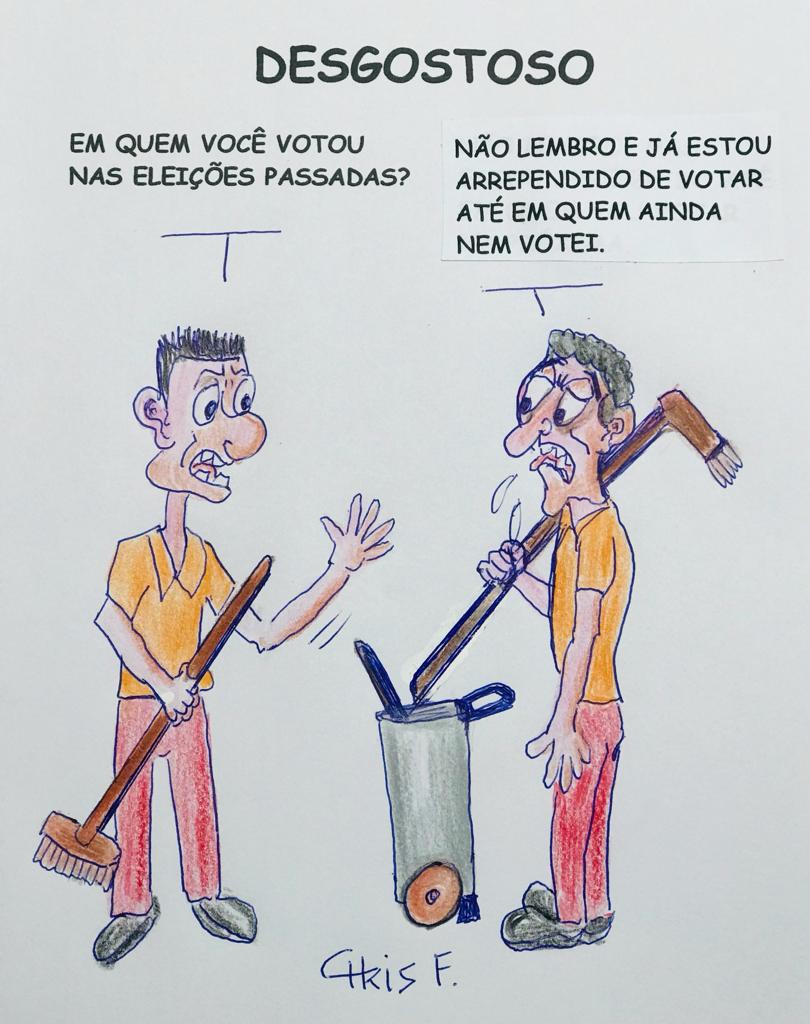 DESGOSTOSO
EM QUEM VOCÊ VOTOU
NAS ELEIÇÕES PASSADAS?
NÃO LEMBRO E JÁ ESTOU
ARREPENDIDO DE VOTAR
ATÉ EM QUEM AINDA
NEM VOTEI.
CHRIS F.